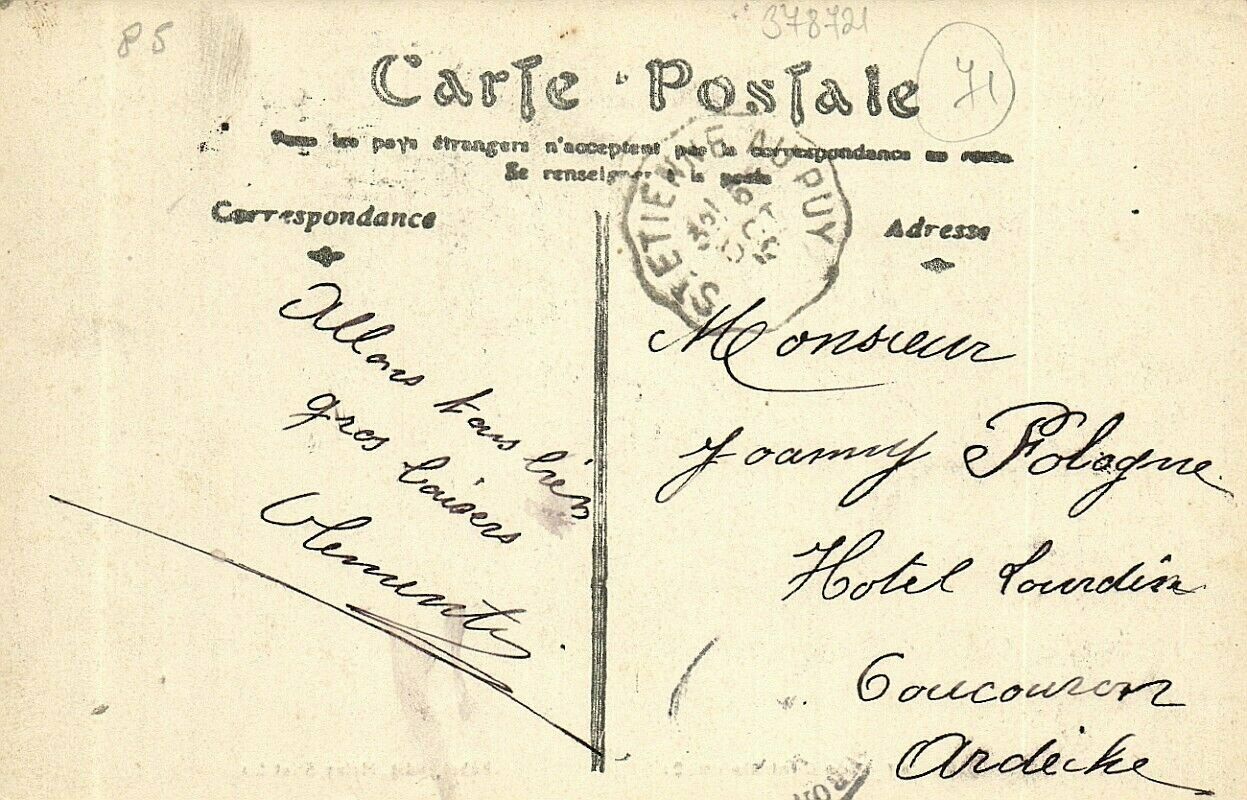 85
378721
71
Carte Postale
Tous les pays étrangers n'acceptent pas la correspondance au recto
Se renseigner à la poste
Correspondance
Adresse
St ETIENNE AU PUY
Allons tous bien
gros baisers
Monsieur
Joanny Pologne
Hotel Lourdin
Coucouron
Ardèche